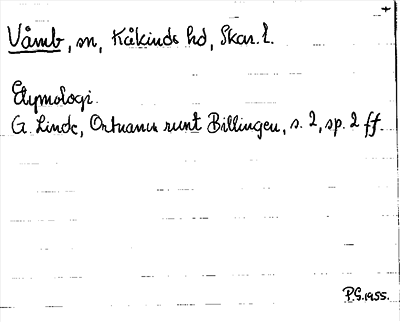 Våmb, sn, Kåkinds hd, Skar. l.
Etymologi.
G. Linde, Ortnamn runt Billingen, s. 2, sp. 2 ff.
P.G. 1955.